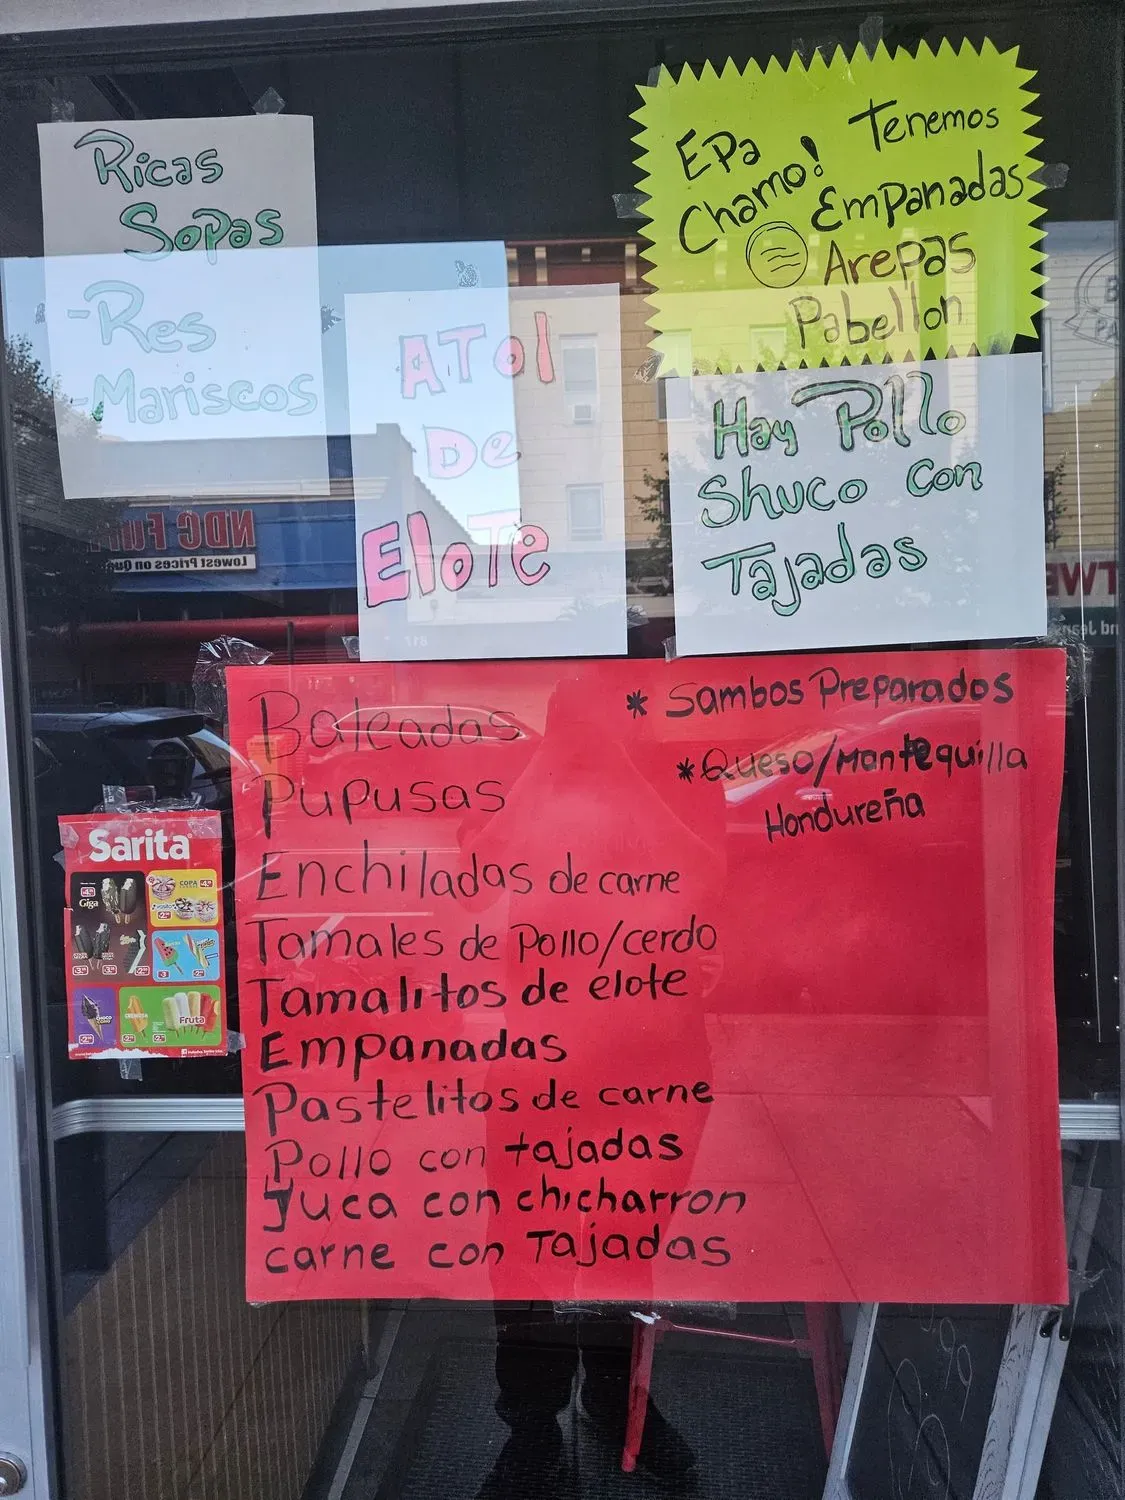 Ricas
Sopas
-Res
-Mariscos
EPa
Chamo!
Tenemos
Empanadas
Arepas
Pabellon
ATol
De
EloTe
Hay Pollo
Shuco con
Tajadas
Baleadas
Pupusas
Enchiladas de carne
Tamales de Pollo/cerdo
Tamalitos de elote
Empanadas
Pastelitos de carne
Pollo con tajadas
Yuca con chicharron
carne con Tajadas
* Sambos Preparados
*Queso/Mantequilla
Hondureña
Sarita
Giga
COPA
Fruta
NDC Fur
Lowest Prices on Qu